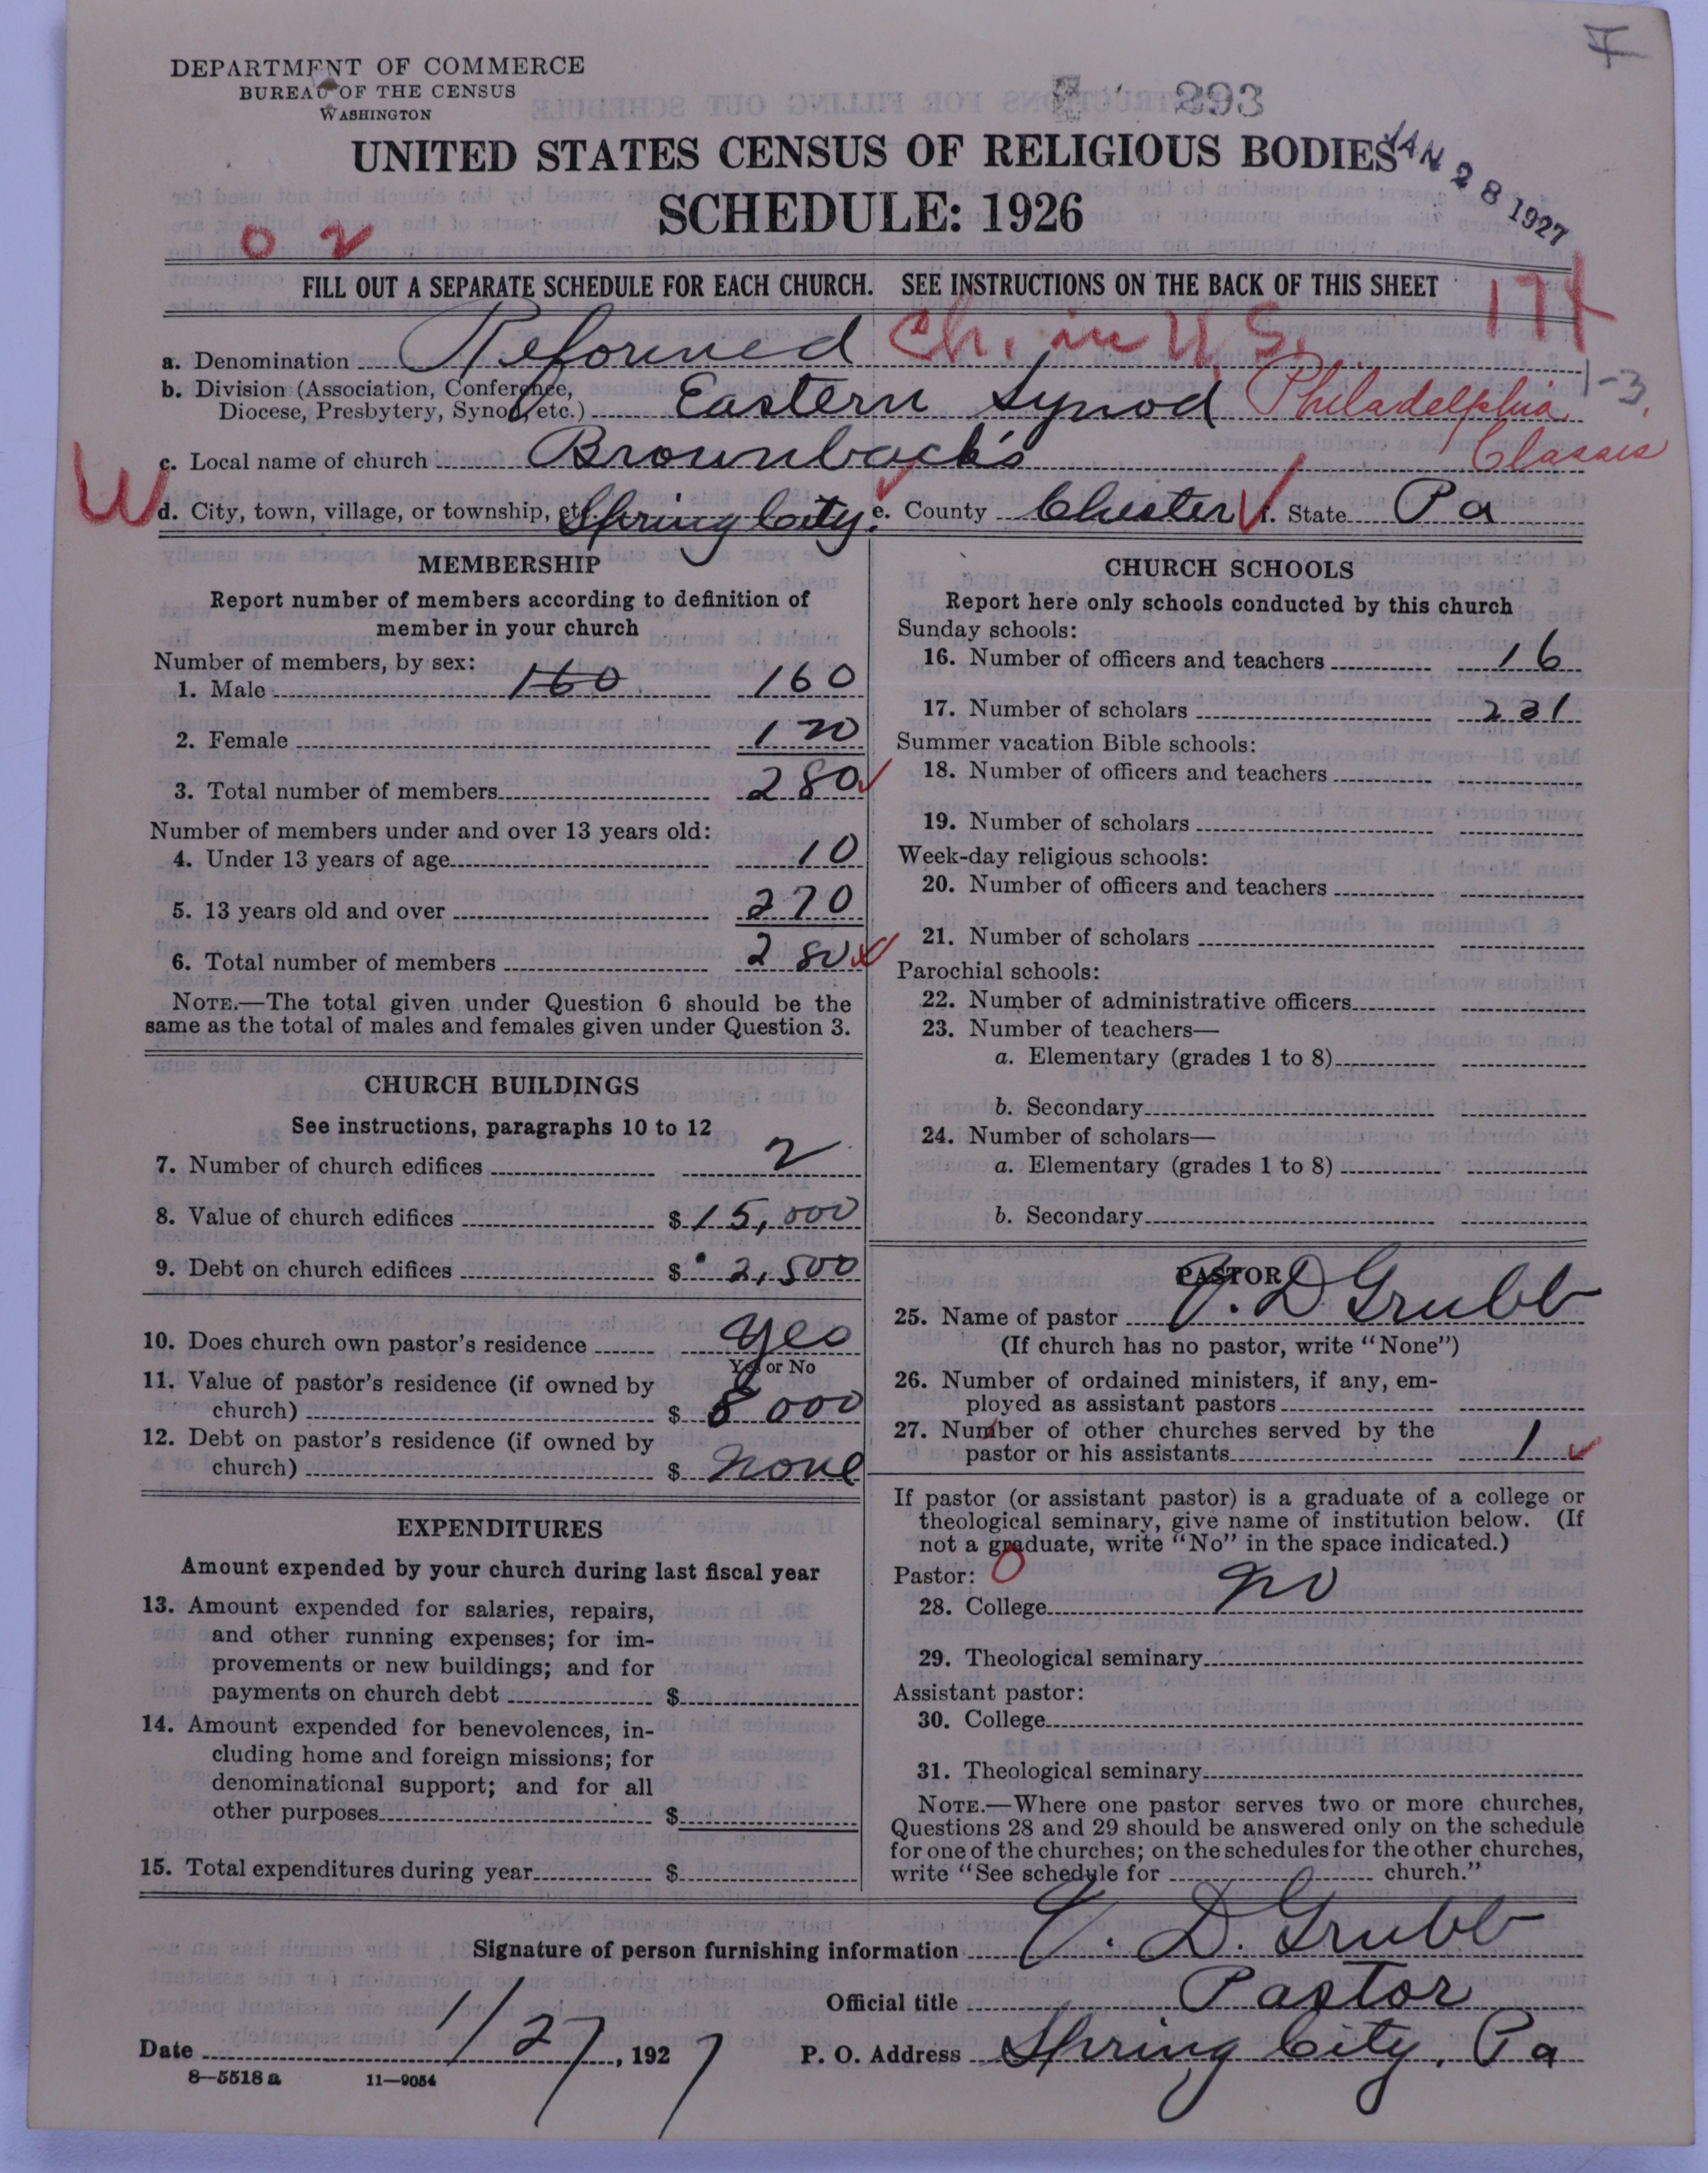 DEPARTMENT OF COMMERCE
BUREAU OF THE CENSUS
WASHINGTON
293
UNITED STATES CENSUS OF RELIGIOUS BODIES
SCHEDULE: 1926
JAN 28 1927
0 2
FILL OUT A SEPARATE SCHEDULE FOR EACH CHURCH. SEE INSTRUCTIONS ON THE BACK OF THIS SHEET
a. Denomination Reformed Ch. in U.S.
b. Division (Association, Conference,
Diocese, Presbytery, Synod, etc.) Eastern Synod Philadelphia Classis
1-3
c. Local name of church Brownback's
W
d. City, town, village, or township, etc. Spring City. e. County Chester f. State Pa
MEMBERSHIP
Report number of members according to definition of
member in your church
Number of members, by sex:
1. Male 160 160
2. Female 120
3. Total number of members 280
Number of members under and over 13 years old:
4. Under 13 years of age 10
5. 13 years old and over 270
6. Total number of members 280
NOTE.—The total given under Question 6 should be the
same as the total of males and females given under Question 3.
CHURCH BUILDINGS
See instructions, paragraphs 10 to 12
7. Number of church edifices 2
8. Value of church edifices $ 15,000
9. Debt on church edifices $ 2,500
10. Does church own pastor's residence Yes
Yes or No
11. Value of pastor's residence (if owned by
church) $ 8 000
12. Debt on pastor's residence (if owned by
church) $ none
EXPENDITURES
Amount expended by your church during last fiscal year
13. Amount expended for salaries, repairs,
and other running expenses; for im-
provements or new buildings; and for
payments on church debt $
14. Amount expended for benevolences, in-
cluding home and foreign missions; for
denominational support; and for all
other purposes $
15. Total expenditures during year $
CHURCH SCHOOLS
Report here only schools conducted by this church
Sunday schools:
16. Number of officers and teachers 16
17. Number of scholars 231
Summer vacation Bible schools:
18. Number of officers and teachers
19. Number of scholars
Week-day religious schools:
20. Number of officers and teachers
21. Number of scholars
Parochial schools:
22. Number of administrative officers
23. Number of teachers—
a. Elementary (grades 1 to 8)
b. Secondary
24. Number of scholars—
a. Elementary (grades 1 to 8)
b. Secondary
PASTOR
25. Name of pastor D Grubb
(If church has no pastor, write "None")
26. Number of ordained ministers, if any, em-
ployed as assistant pastors
27. Number of other churches served by the
pastor or his assistants 1
If pastor (or assistant pastor) is a graduate of a college or
theological seminary, give name of institution below. (If
not a graduate, write "No" in the space indicated.)
Pastor: 0
28. College no
29. Theological seminary
Assistant pastor:
30. College
31. Theological seminary
NOTE.—Where one pastor serves two or more churches,
Questions 28 and 29 should be answered only on the schedule
for one of the churches; on the schedules for the other churches,
write "See schedule for church."
Signature of person furnishing information D. Grubb
Official title Pastor
Date 1/27, 1927 P. O. Address Spring City, Pa
8—5518 a 11—9054